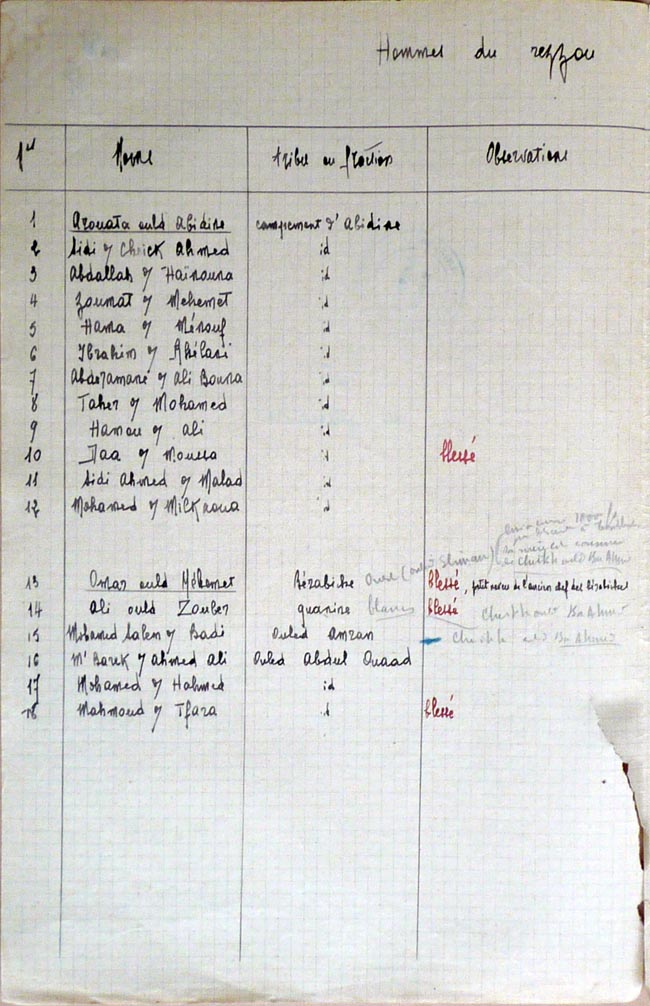 Hommes du rezzou
Nos Noms tribus ou fractions Observations
1 Azouata ould Abidine campement d'Abidine
2 Sidi o/ Cheick Ahmed id
3 Abdallah o/ Haïnouna id
4 Zoumat o/ Mehemet id
5 Hama o/ Ménouf id
6 Ibrahim o/ Khélasi id
7 Abderamané o/ Ali Bouna id
8 Taher o/ Mohamed id
9 Hamou o/ Ali id
10 Daa o/ Moussa id blessé
11 Sidi Ahmed o/ Malad id
12 Mohamed o/ Milknoua id
Cheikh ould Ba Ahmed
13 Omar ould Méhemet Bérabiche Ould (ould Sliman) blessé, petit neveu de l'ancien chef des Bérabiches
14 Ali ould Zouber guanine blancs blessé Cheikh ould Ba Ahmed
15 Mohamed Salem o/ Badi Ouled Amran Cheikh ould Ba Ahmed
16 M'Barek o/ Ahmed Ali Ouled Abdul Ouaad
17 Mohamed o/ Hahmed id
18 Mahmoud o/ Tfara id blessé